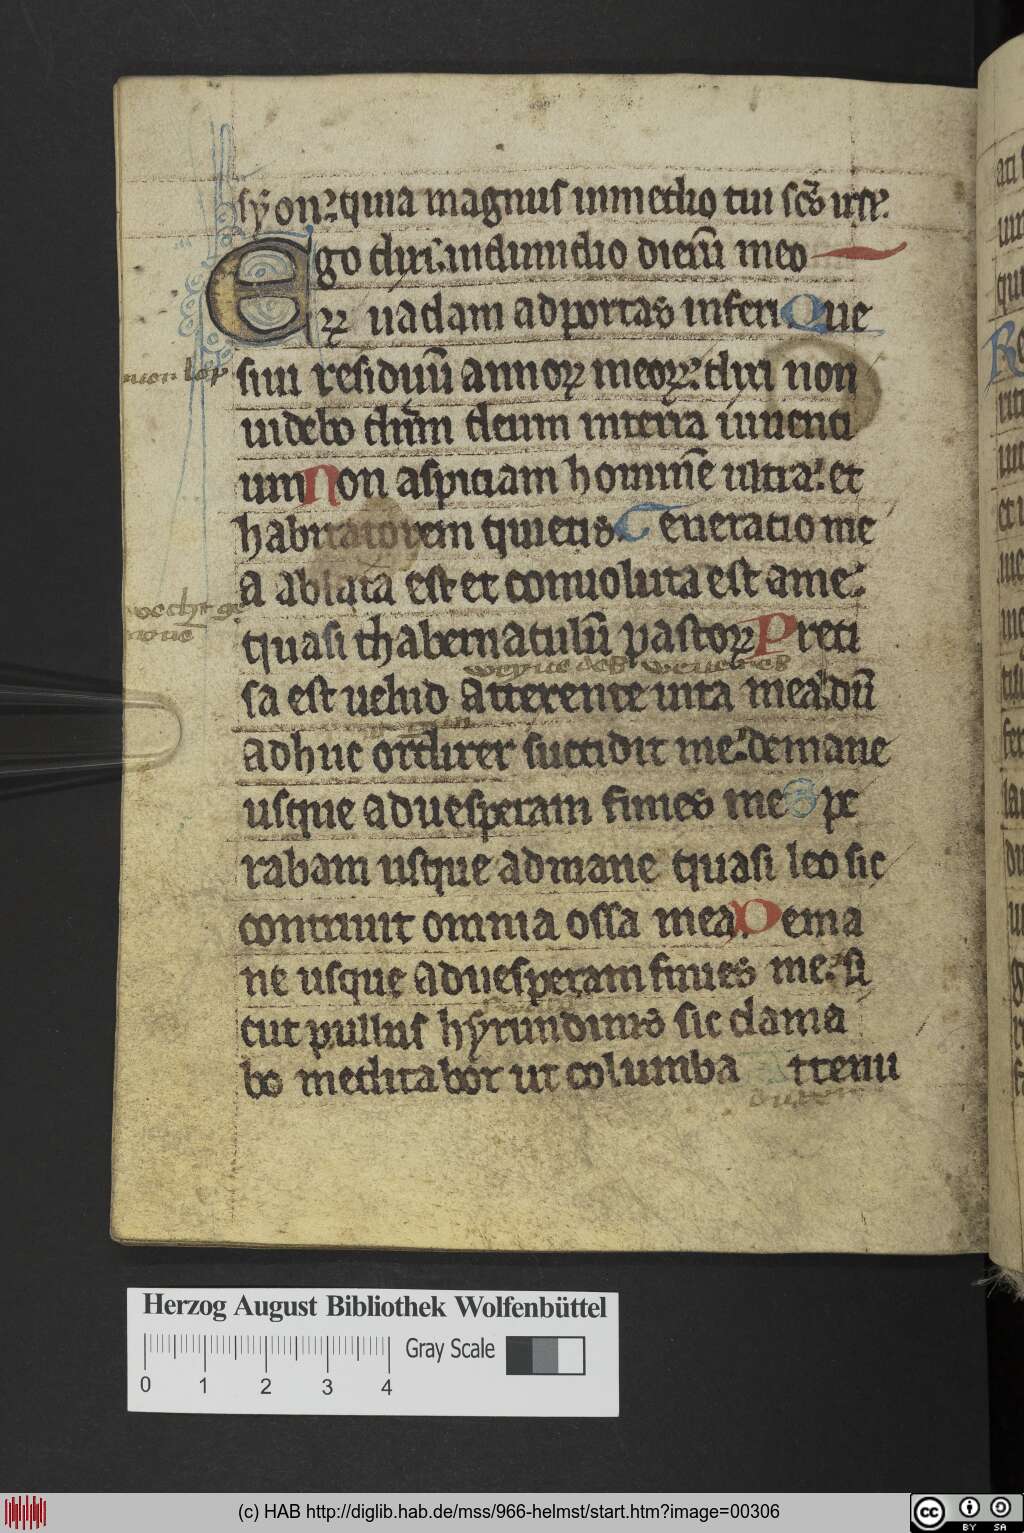 syon: quia magnus inmedio tui scs̄ isr̄l.
Ego dixi: indimidio dierū meo
rꝝ uadam adportas inferi Que
siui residuū annoꝝ meoꝝ: dixi non
uidebo dn̄m deum interra uiuenti
um Non aspiciam hominē ultra: et
habitatorem quietis Generatio me
a ablata est et conuoluta est ame:
quasi thabernaculū pastoꝝ Preci
sa est uelud attexente uita mea: dū
adhuc ordirer succidit me: demane
usque aduesperam finies me Spe
rabam usque admane quasi leo sic
contriuit omnia ossa mea: Dema
ne usque aduesperam finies me: si
cut pullus hyrundinis sic clama
bo meditabor ut columba Attenu
Herzog August Bibliothek Wolfenbüttel
Gray Scale
0 1 2 3 4
(c) HAB http://diglib.hab.de/mss/966-helmst/start.htm?image=00306
cc BY SA